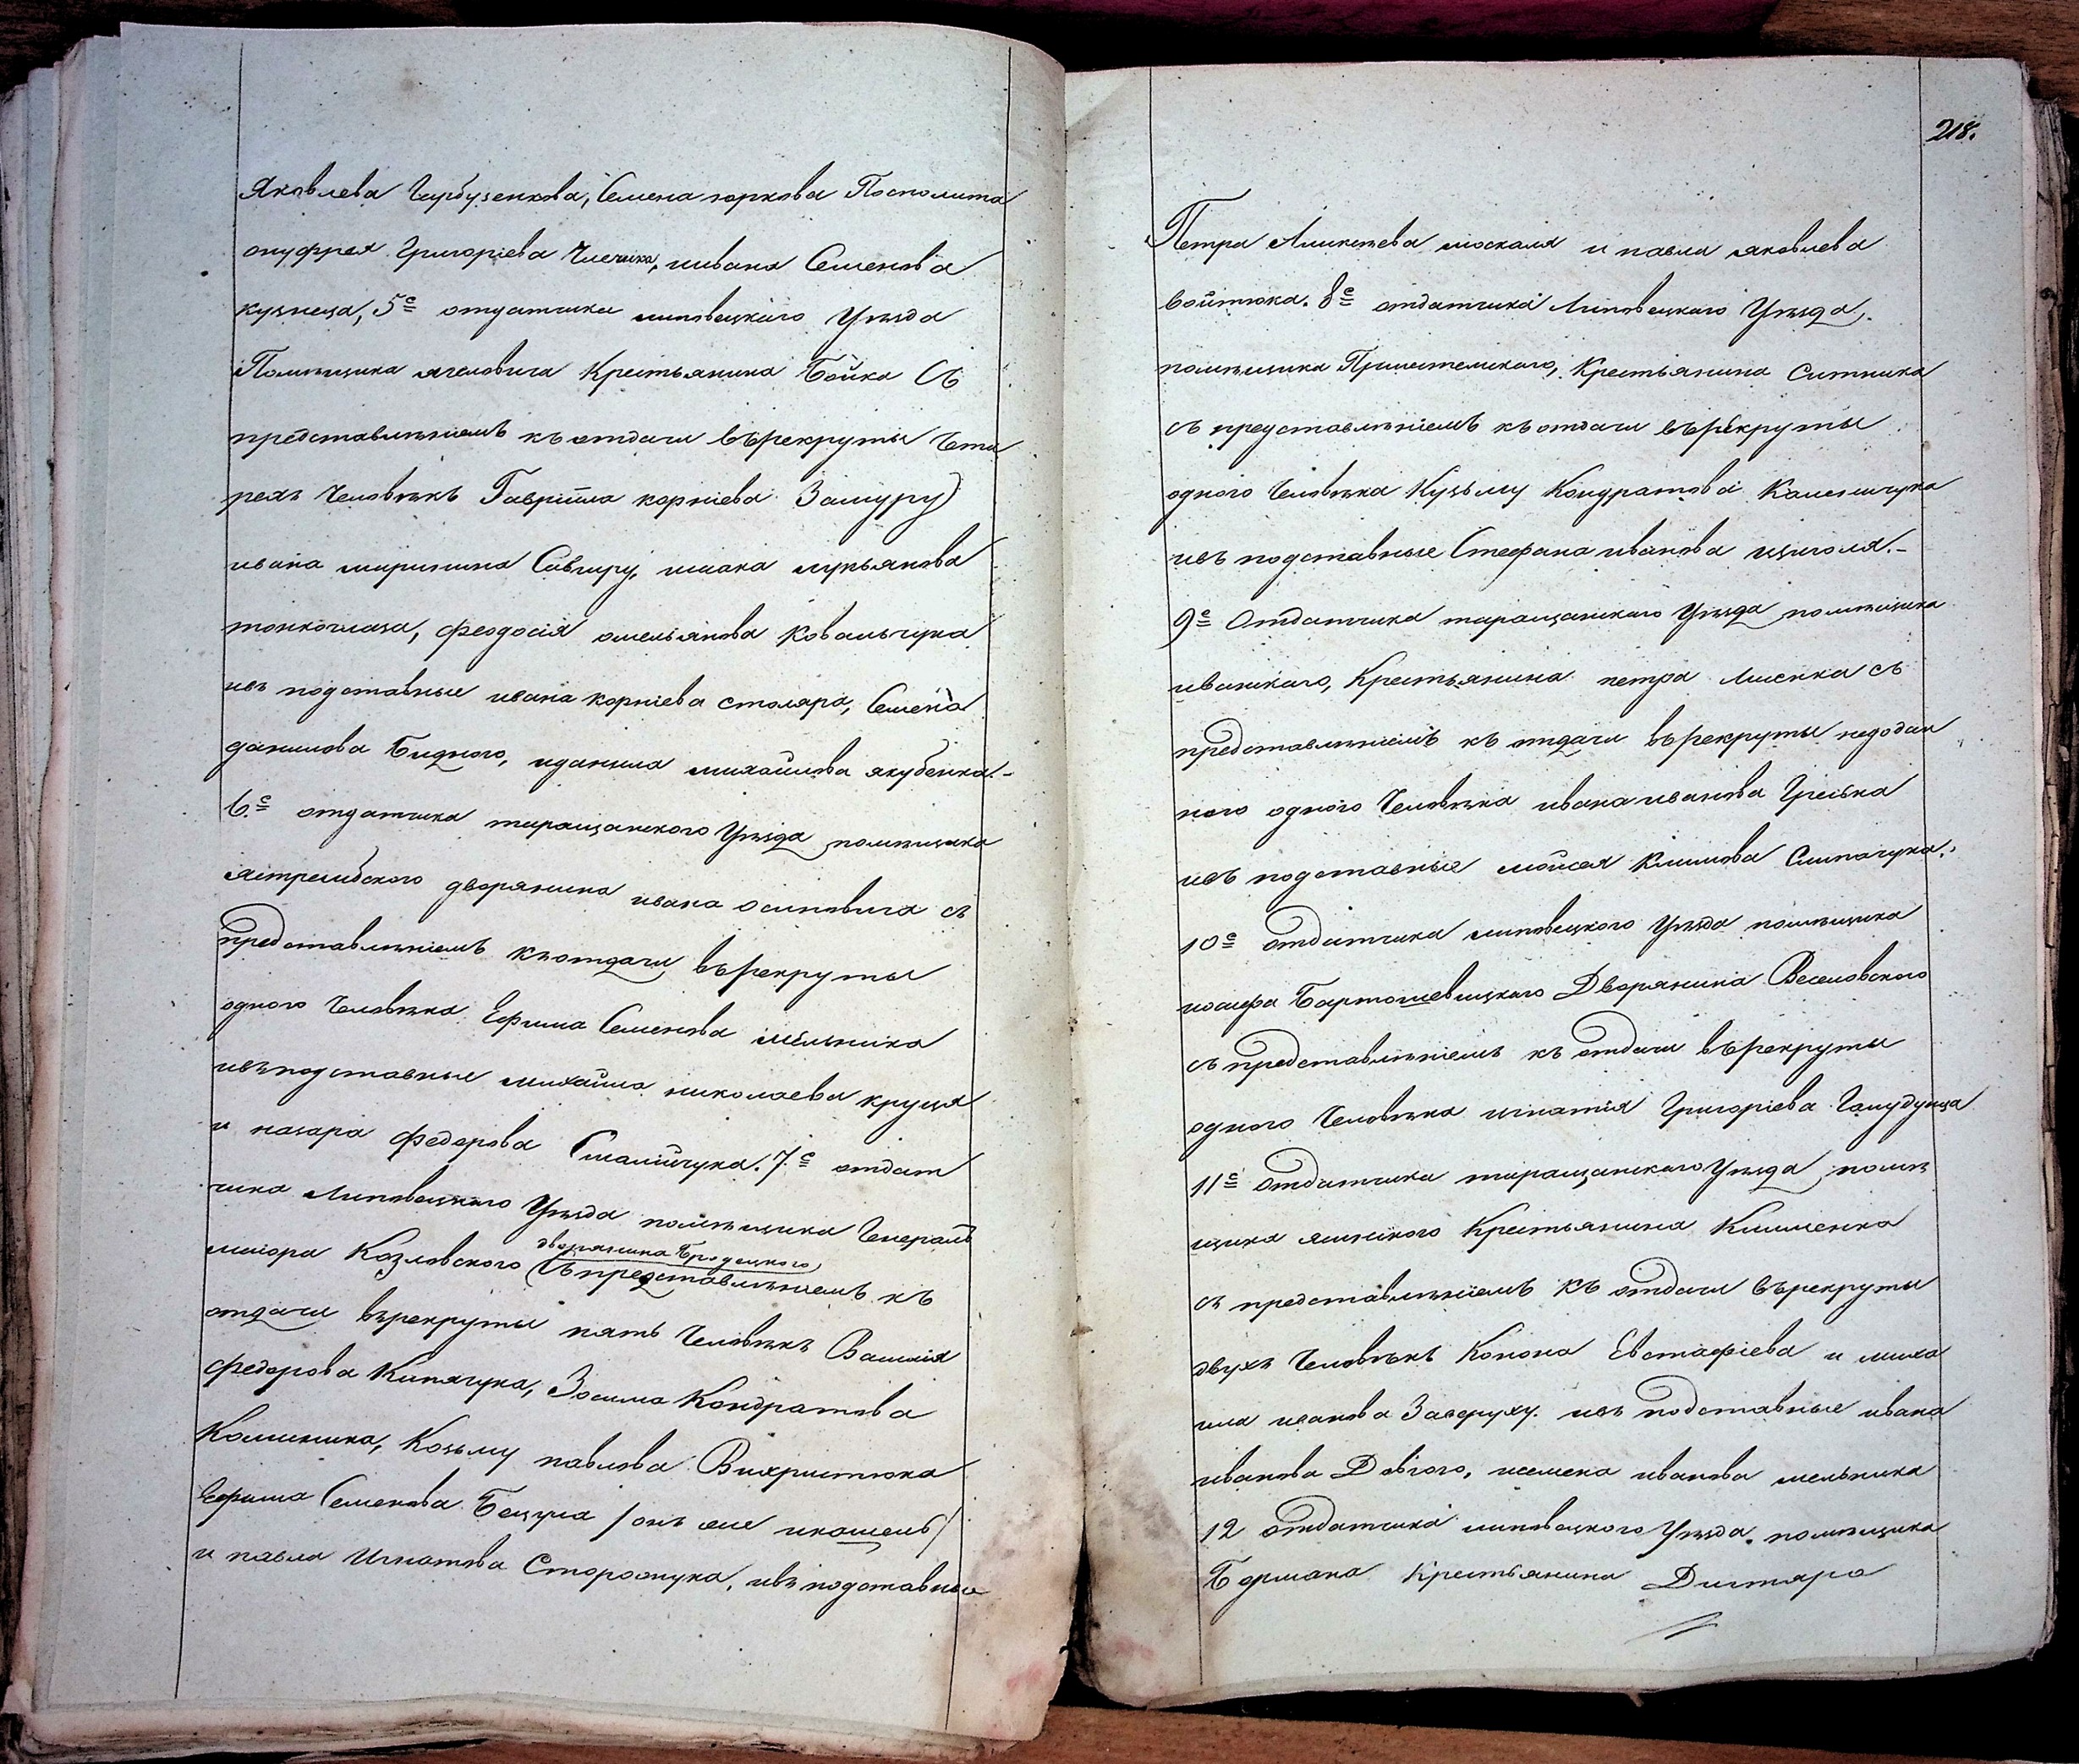 Яковлева Гарбузенкова, Семена юркова Посполита
онуфрея Григоріева Члечика, ивана Семенова
кузнеца, 5<sup>е</sup> отдатчика липовецкаго Уѣзда
Помѣщика Крестьянина Бойка Съ
представленіемъ къ отдачи въ рекруты Четы
рехъ Человѣкъ Гавріила корніева Замуру
ивана Савгиру, исака лукьянова
тонкоглаза, феодосія омельянова Ковальчука
ивъ подставные ивана корніева столяра, Семена
данилова Бидного, идамила михайлова якубенка.-
6<sup>е</sup> отдатчика таращанского Уѣзда помѣщика
ястрембского дворянина ивана осиповича съ
представленіемъ къ отдачи въ рекруты
одного Человѣка Ефима Семенова мельника
ивъ подставные михайла николаева круця
и назара федорова Смалійчука. 7<sup>е</sup> отдат
чика Липовецкого Уѣзда помѣщика Генералъ
маіора Козловского дворянина Бродецкого Съ представленіемъ къ
отдачи въ рекруты пять Человѣкъ Василія
федорова Кипячука, Зосима Кондратова
Калиника, Козьму павлова Вихристюка
Ефима Семенова Бецула /онъ же
и павла Игнатова Сторожука, ивъ подставные
218.
Петра Аликсѣева москаля и павла яковлева
войтюка. 8<sup>е</sup> отдатчика Липовецкаго Уѣзда
помѣщика Крестьянина Ситника
съ представленіемъ къ отдачи въ рекруты
одного Человѣка Кузьму Кондратова
ивъ подставные Стефана иванова
9<sup>е</sup> Отдатчика таращанскаго Уѣзда помѣщика
иванскаго, Крестьянина петра Лисенка съ
представленіемъ къ отдачи въ рекруты недодан
ного одного Человѣка ивана иванова
ивъ подставные мойсея Климова Слипачука.
10<sup>е</sup> отдатчика липовецкого Уѣзда помѣщика
иосифа Бартошевицкого Дворянина Веселовского
съ представленіемъ къ отдачи въ рекруты
одного Человѣка игнатія Григоріева
11<sup>е</sup> отдатчика таращанскаго Уѣзда помѣ
щика Крестьянина Клименка
съ представленіемъ къ отдачи въ рекруты
двухъ Человѣкъ Конона Евстафіева и миха
ила иванова Заверуху. ивъ подставные ивана
иванова Довгого, исемена иванова мельника
12 отдатчика липовецкого Уѣзда помѣщика
Бормана Крестьянина Дигтяра